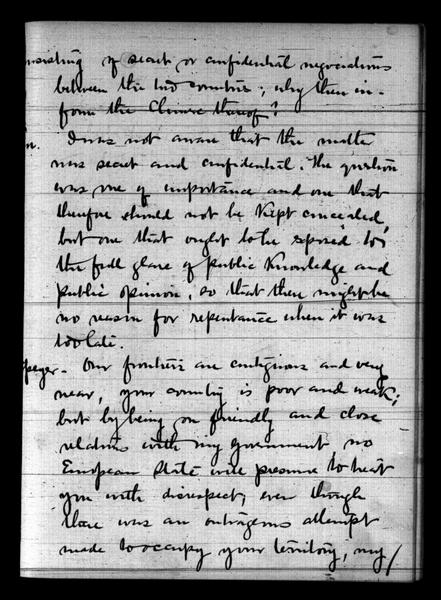 nsisting of secret or confidential negociations
between the two countries; why then in-
form the Chinese thereof?
n. I was not aware that the matter
was secret and confidential. The question
was one of importance and one that
therefore should not be kept concealed,
but one that ought to be exposed to
the full glare of public knowledge and
public opinion, so that there might be
no reason for repentance when it was
too late.
peyer - Our frontiers are contiguous and very
near, your country is poor and weak;
but by being on friendly and close
relations with my government no
European state will presume to treat
you with disrespect, even though
there was an outrageous attempt
made to occupy your territory, my